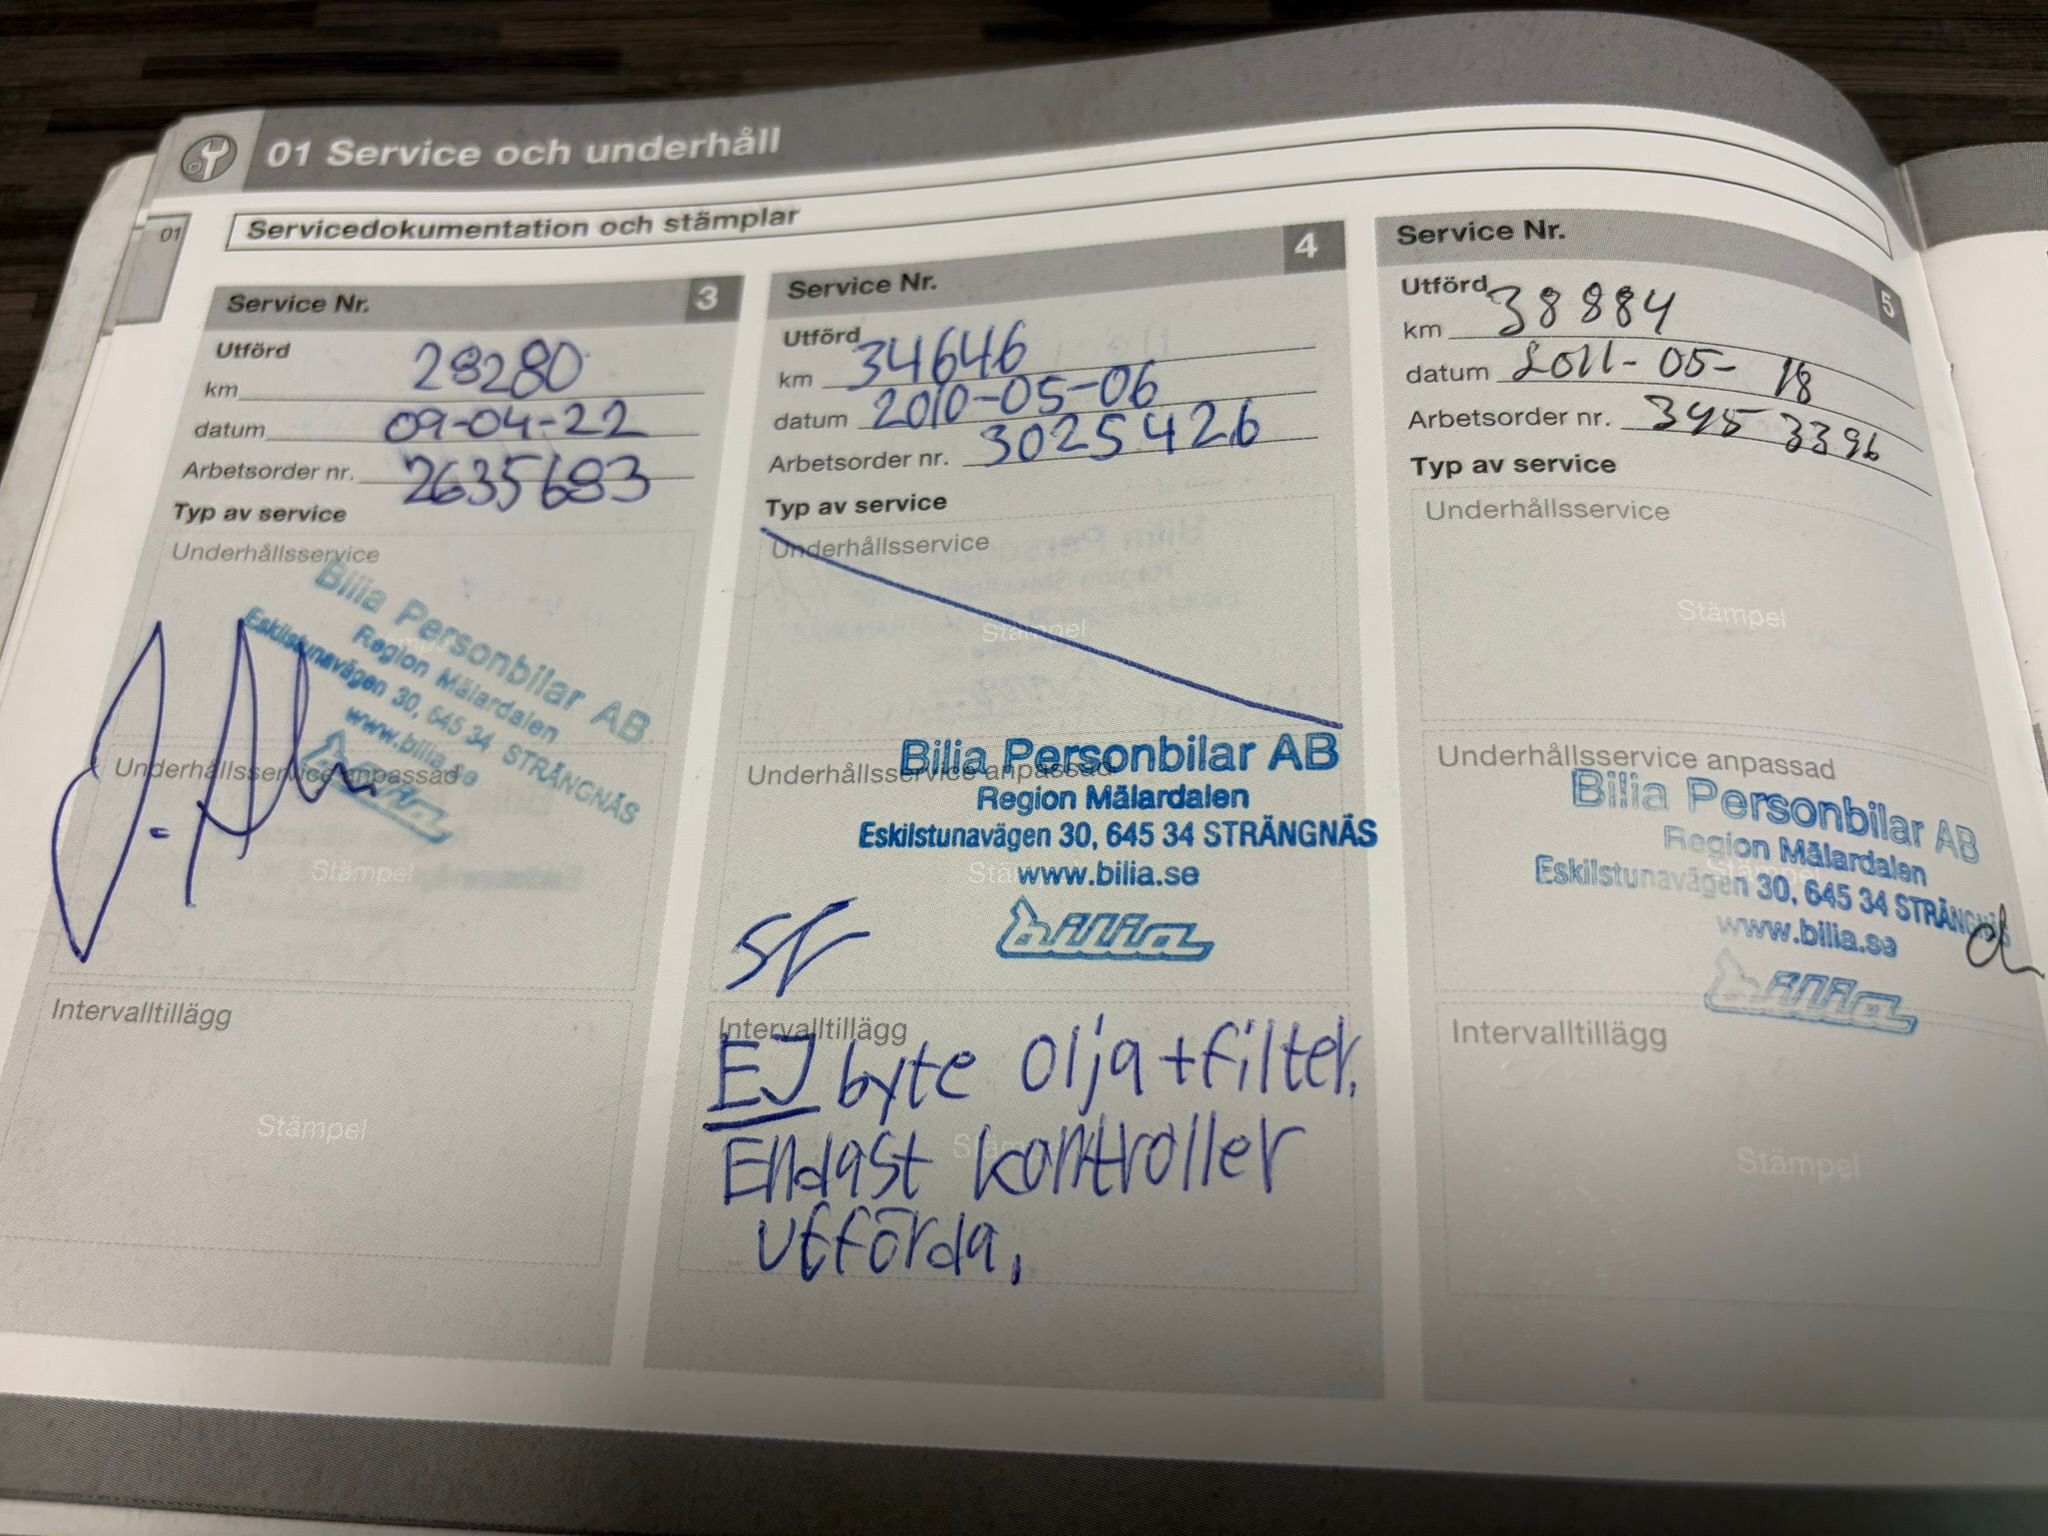 01 Service och underhåll
01
Servicedokumentation och stämplar
Service Nr. 3
Utförd
km 28280
datum 09-04-22
Arbetsorder nr. 2635683
Typ av service
Underhållsservice
Bilia Personbilar AB
Region Mälardalen
Eskilstunavägen 30, 645 34 STRÄNGNÄS
www.bilia.se
bilia
Underhållsservice anpassad
Stämpel
Intervalltillägg
Stämpel
Service Nr. 4
Utförd
km 34646
datum 2010-05-06
Arbetsorder nr. 3025426
Typ av service
Underhållsservice
Stämpel
Underhållsservice anpassad
Bilia Personbilar AB
Region Mälardalen
Eskilstunavägen 30, 645 34 STRÄNGNÄS
www.bilia.se
bilia
Intervalltillägg
EJ byte olja+filter,
Endast kontroller
utförda,
Service Nr. 5
Utförd
km 38884
datum 2011-05-18
Arbetsorder nr. 3453396
Typ av service
Underhållsservice
Stämpel
Underhållsservice anpassad
Bilia Personbilar AB
Region Mälardalen
Eskilstunavägen 30, 645 34 STRÄNGNÄS
www.bilia.se
bilia
Intervalltillägg
Stämpel